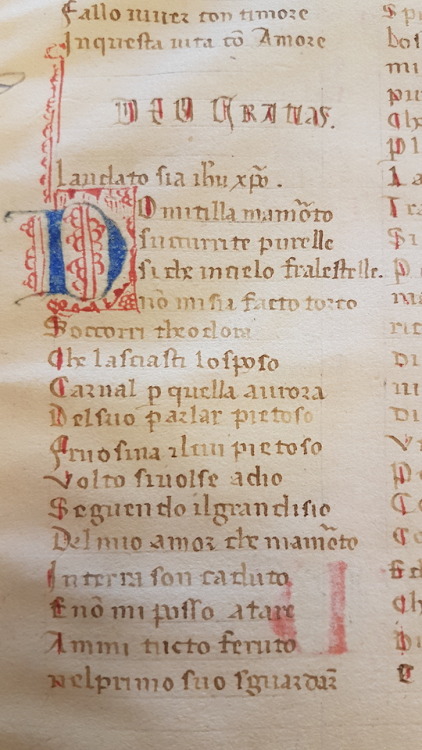 Fallo uiuer con timore
Inquesta uita cō Amore
DEO GRATIAS.
Laudato sia ihu xp̄o.
Domitilla mamōto
succurrite purelle
si che incielo fralestelle.
nō mi sia facto torto
Soccorri theodora
Che lasciasti losposo
Carnal p quella aurora
Del suo parlar pietoso
Volto siuolse adio
Seguendo ilgran disio
Del mio amor che mamōto
In terra son caduto
E nō mi posso atare
Ammi tucto feruto
nelprimo suo sguardar